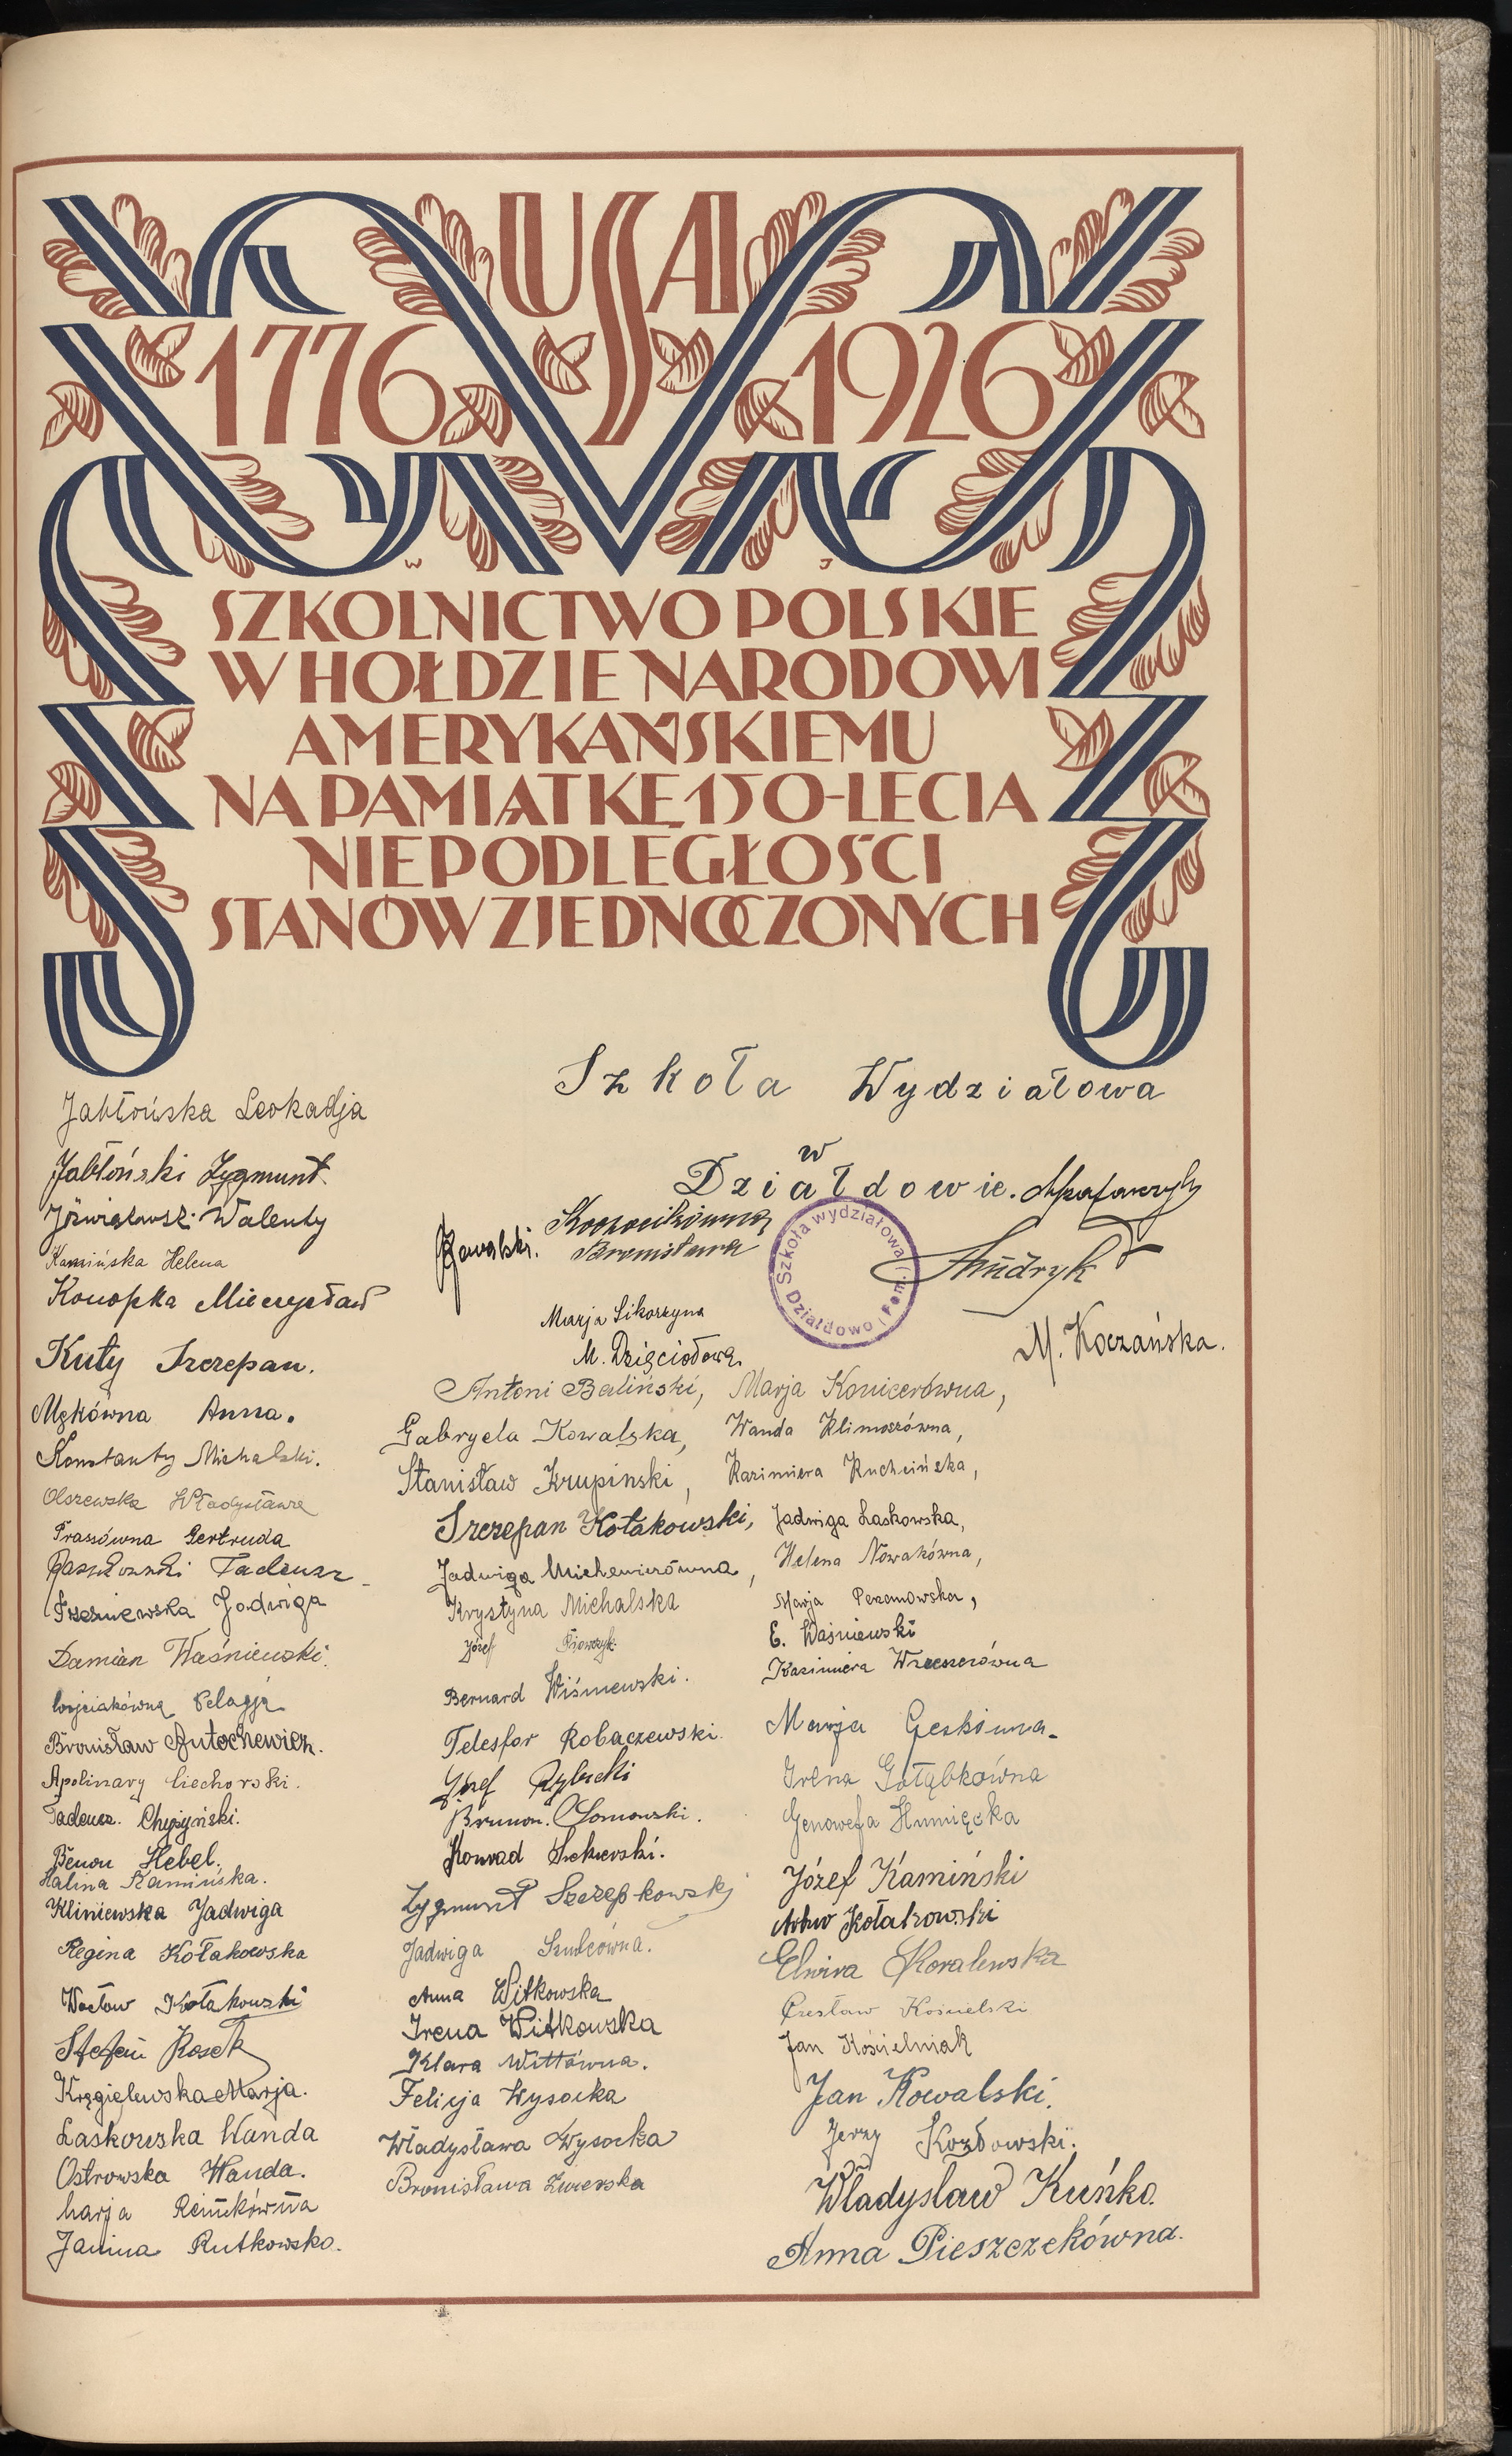 USA
1776 1926
W J
SZKOLNICTWO POLSKIE
W HOŁDZIE NARODOWI
AMERYKAŃSKIEMU
NA PAMIĄTKĘ 150-LECIA
NIEPODLEGŁOŚCI
STANÓW ZJEDNOCZONYCH
Szkoła Wydziałowa
w
Działdowie.
Szkoła wydziałowa
Działdowo (Pom.)
Kowalski.
Bronisława
Marja Sikorzyna
M. Dzięciołowa.
M. Koczańska.
Jabłońska Leokadja
Jabłoński Zygmunt.
Walenty
Kamińska Helena
Konopka Mieczysław
Kuty Szczepan.
Mękówna Anna.
Konstanty Michalski.
Olszewska Władysława
Prassówna Gertruda
Tadeusz
Jadwiga
Damian Waśniewski.
Wojciakówna Pelagja
Bronisław Autochewicz.
Apolinary Ciechorski.
Tadeusz. Chyżyński.
Benon Hebel.
Halina Kamińska.
Kliniewska Jadwiga
Regina Kołakowska
Wacław Kołakowski
Stefan Kosek
Kręgielewska Marja.
Laskowska Wanda
Ostrowska Wanda.
Marja Reimkówna
Janina Rutkowska.
Antoni Baliński, Marja Konicerówna,
Gabryela Kowalska, Wanda Klimoszówna,
Stanisław Krupinski, Kazimiera Kuchcińska,
Szczepan Kołakowski, Jadwiga Laskowska,
Jadwiga Michewiczówna, Helena Nowakówna,
Krystyna Michalska Marja Pezanowska,
Józef E. Waśniewski
Bernard Wiśniewski. Kazimiera Wrzeszczówna
Telesfor Robaczewski.
Józef Rybicki
Brunon. Słomowski.
Konrad
Zygmunt Szczepkowski
Jadwiga Szulcówna.
Anna Witkowska
Irena Witkowska
Klara Wittówna.
Felicja Wysocka
Władysława Wysocka
Bronisława Zwierska
Marja
Irena Gołąbkówna
Genowefa Humięcka
Józef Kamiński
Artur Kołakowski
Elwira Koralewska
Czesław Kosinelski
Jan Kościelniak
Jan Kowalski.
Jerzy Kozłowski.
Władysław Kuńko.
Anna Pieszczekówna.